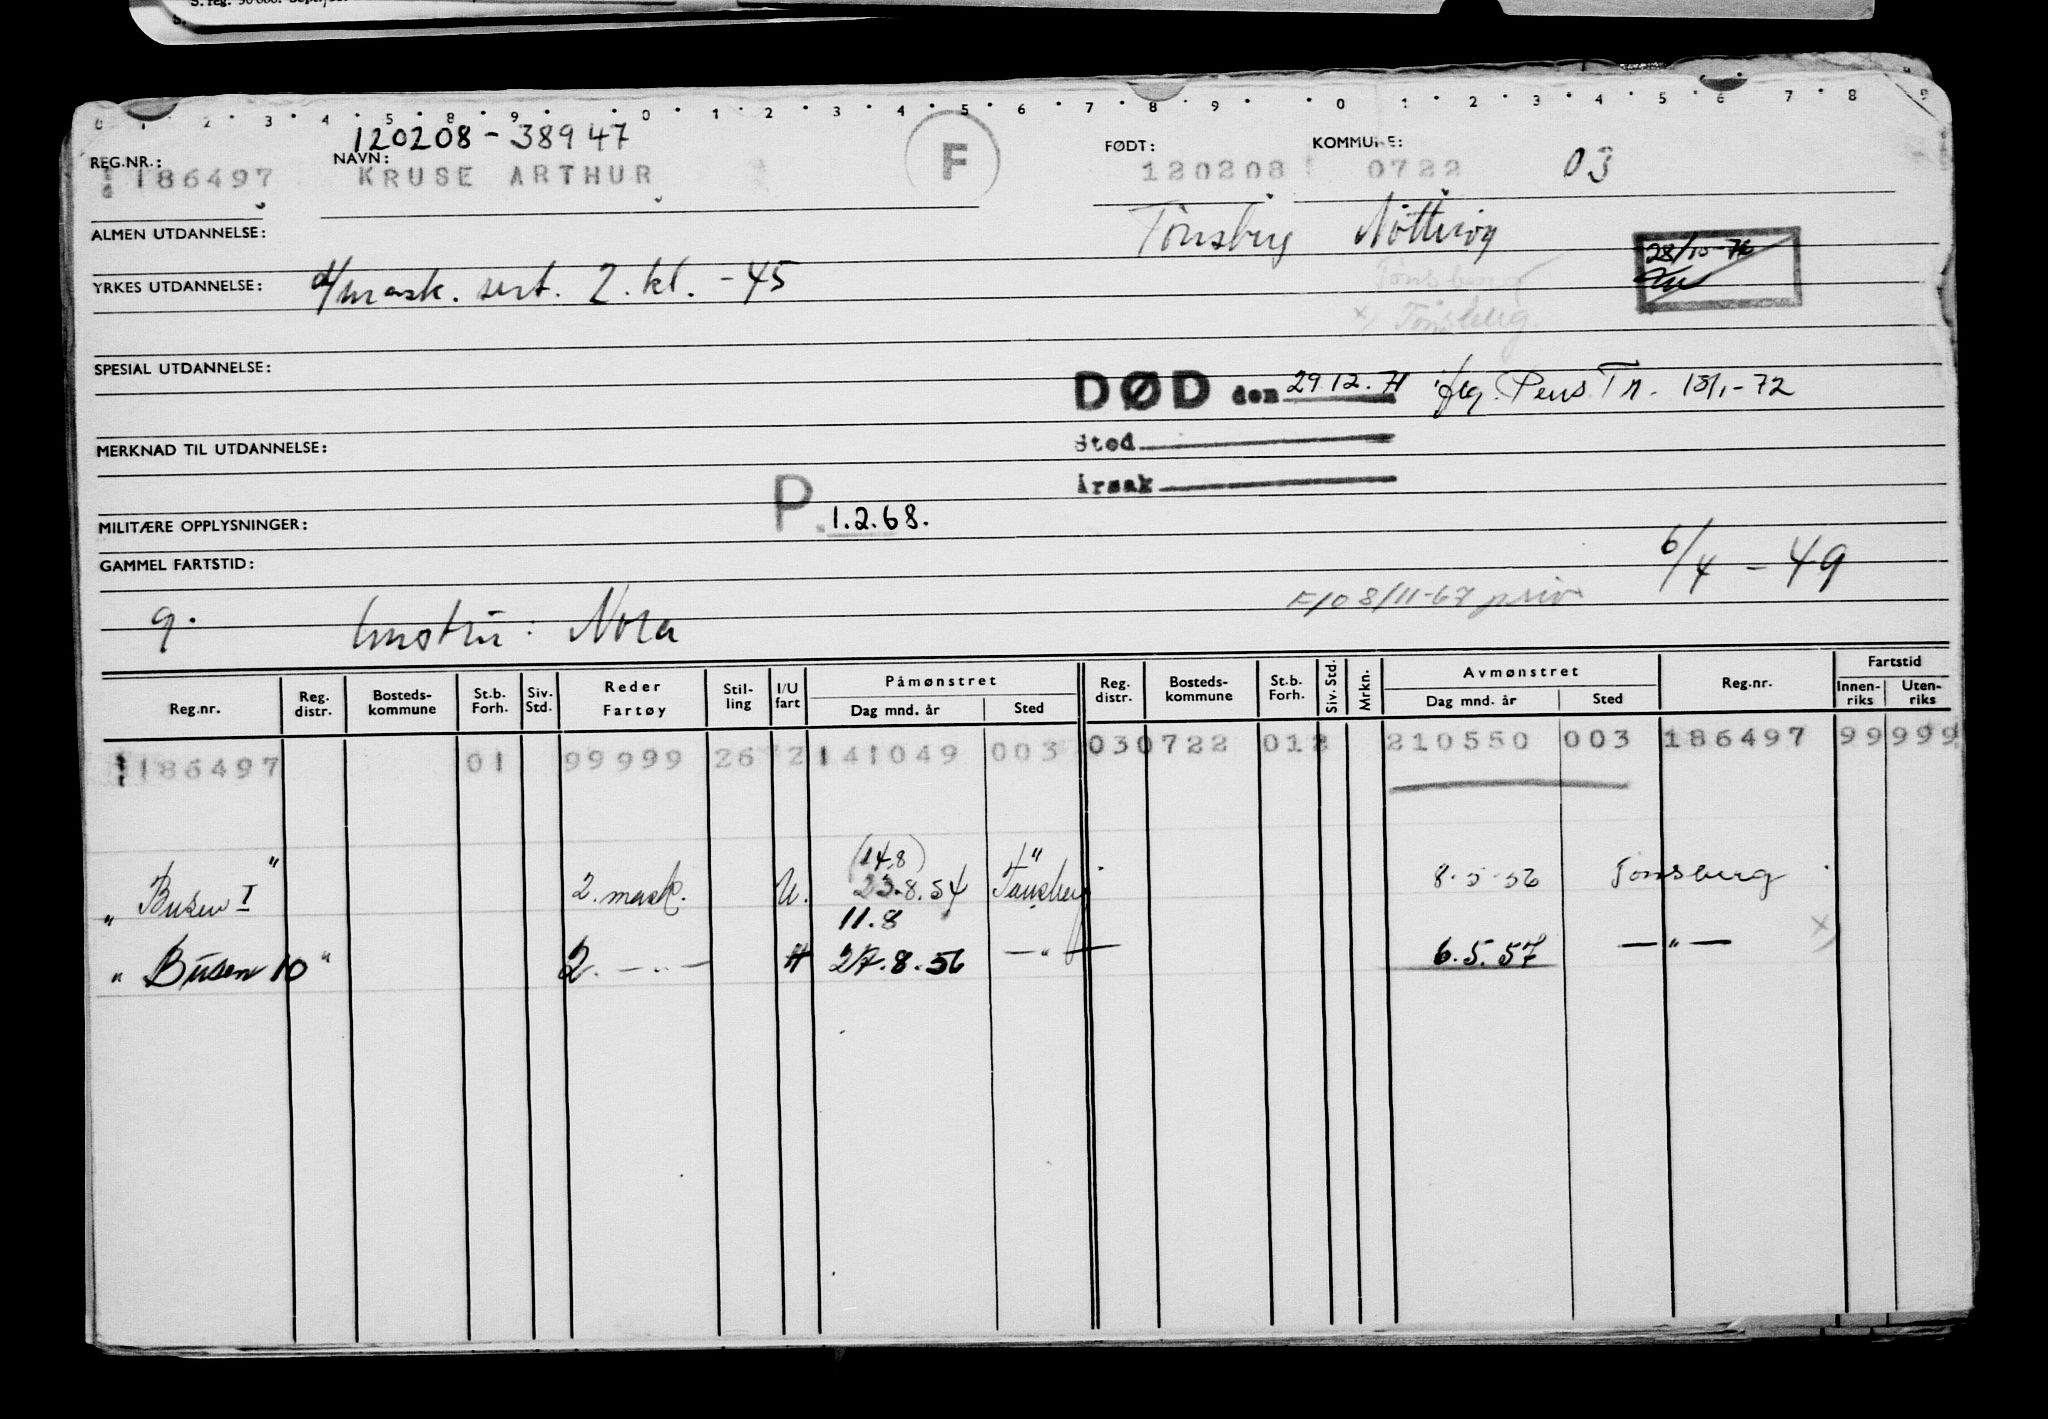 0 1 2 3 4 5 8 9 0 1 2 3 4 5 6 7 8 9 0 1 2 3 4 5 6 7 8 9
120208-38947
REG.NR.: NAVN: FØDT: KOMMUNE:
186497 KRUSE ARTHUR F 120208 0722 03
ALMEN UTDANNELSE: Tønsberg Nøtterøy
28/10-76
YRKES UTDANNELSE: d/mask. sert. 2. kl. -45
Tønsberg
x) Tønsberg
SPESIAL UTDANNELSE:
DØD den 29.12.71 iflg. Pens. Tr. 18/1-72
MERKNAD TIL UTDANNELSE: Sted
Årsak
P. 1.2.68.
MILITÆRE OPPLYSNINGER:
GAMMEL FARTSTID: 6/4 - 49
9. hustru: Nora
Fartstid
Reg.nr. Reg. distr. Bosteds-kommune St.b. Forh. Siv. Std. Reder Fartøy Stil-ling I/U fart Påmønstret Dag mnd. år Sted Reg. distr. Bosteds-kommune St.b. Forh. Siv. Std. Mrkn. Avmønstret Dag mnd. år Sted Reg.nr. Innen-riks Uten-riks
186497 01 99999 26 2 141049 003 03 0722 012 210550 003 186497 99 999
(14.8)
"Busen I" 2. mask. U. 23.8.54 Tønsberg 8-5-56 Tønsberg
11.8 x)
"Busen 10" 2. —"— 27.8.56 —"— 6.5.57 —"—